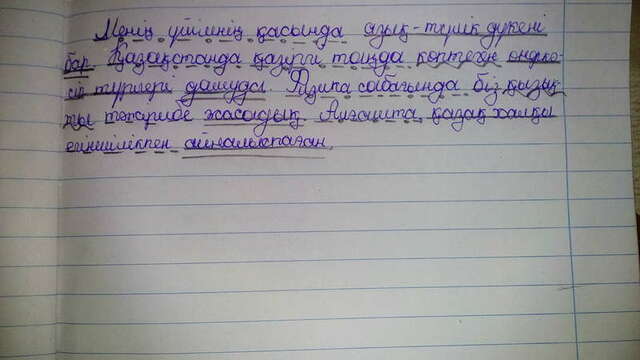 Менің үйімнің қасында азық-түлік дүкені
бар. Қазақстанда қазіргі таңда көптеген өндірі-
сің түрлері дамуды. Физика сабағында біз қызық-
ты тәжірибе жасадық. Алғашта қазақ халқы
егіншілікпен айналыспаған.